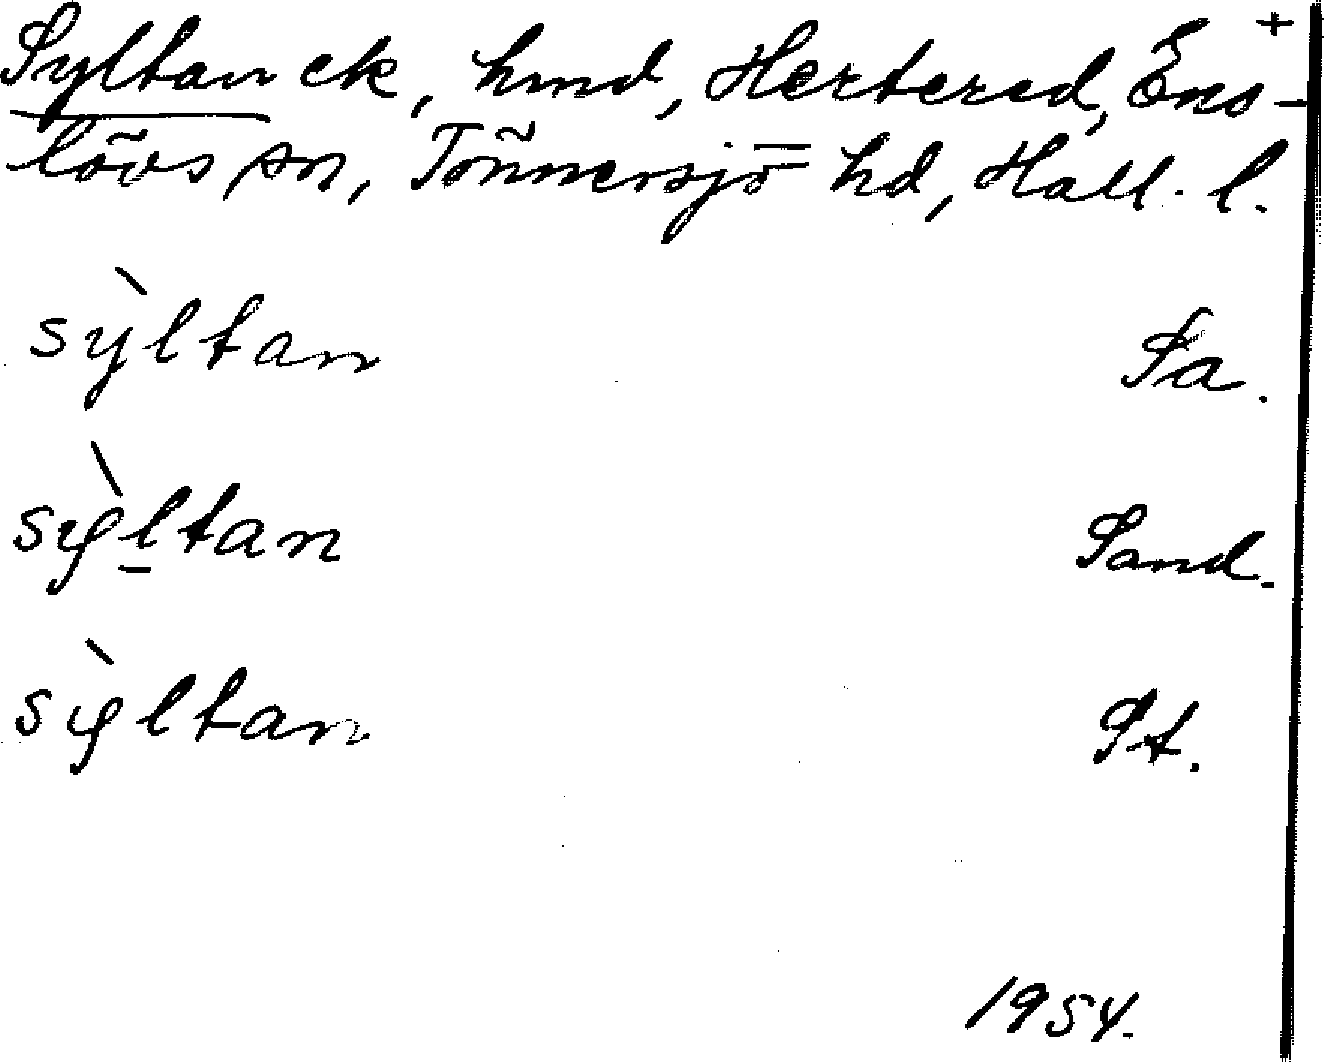 +
Syltan ek, hmd, Hertered, Ens-
lövs sn, Tönnersjö hd, Hall. l.
sỳltan Sa.
sỳltan Sand.
sỳltan St.
1954.